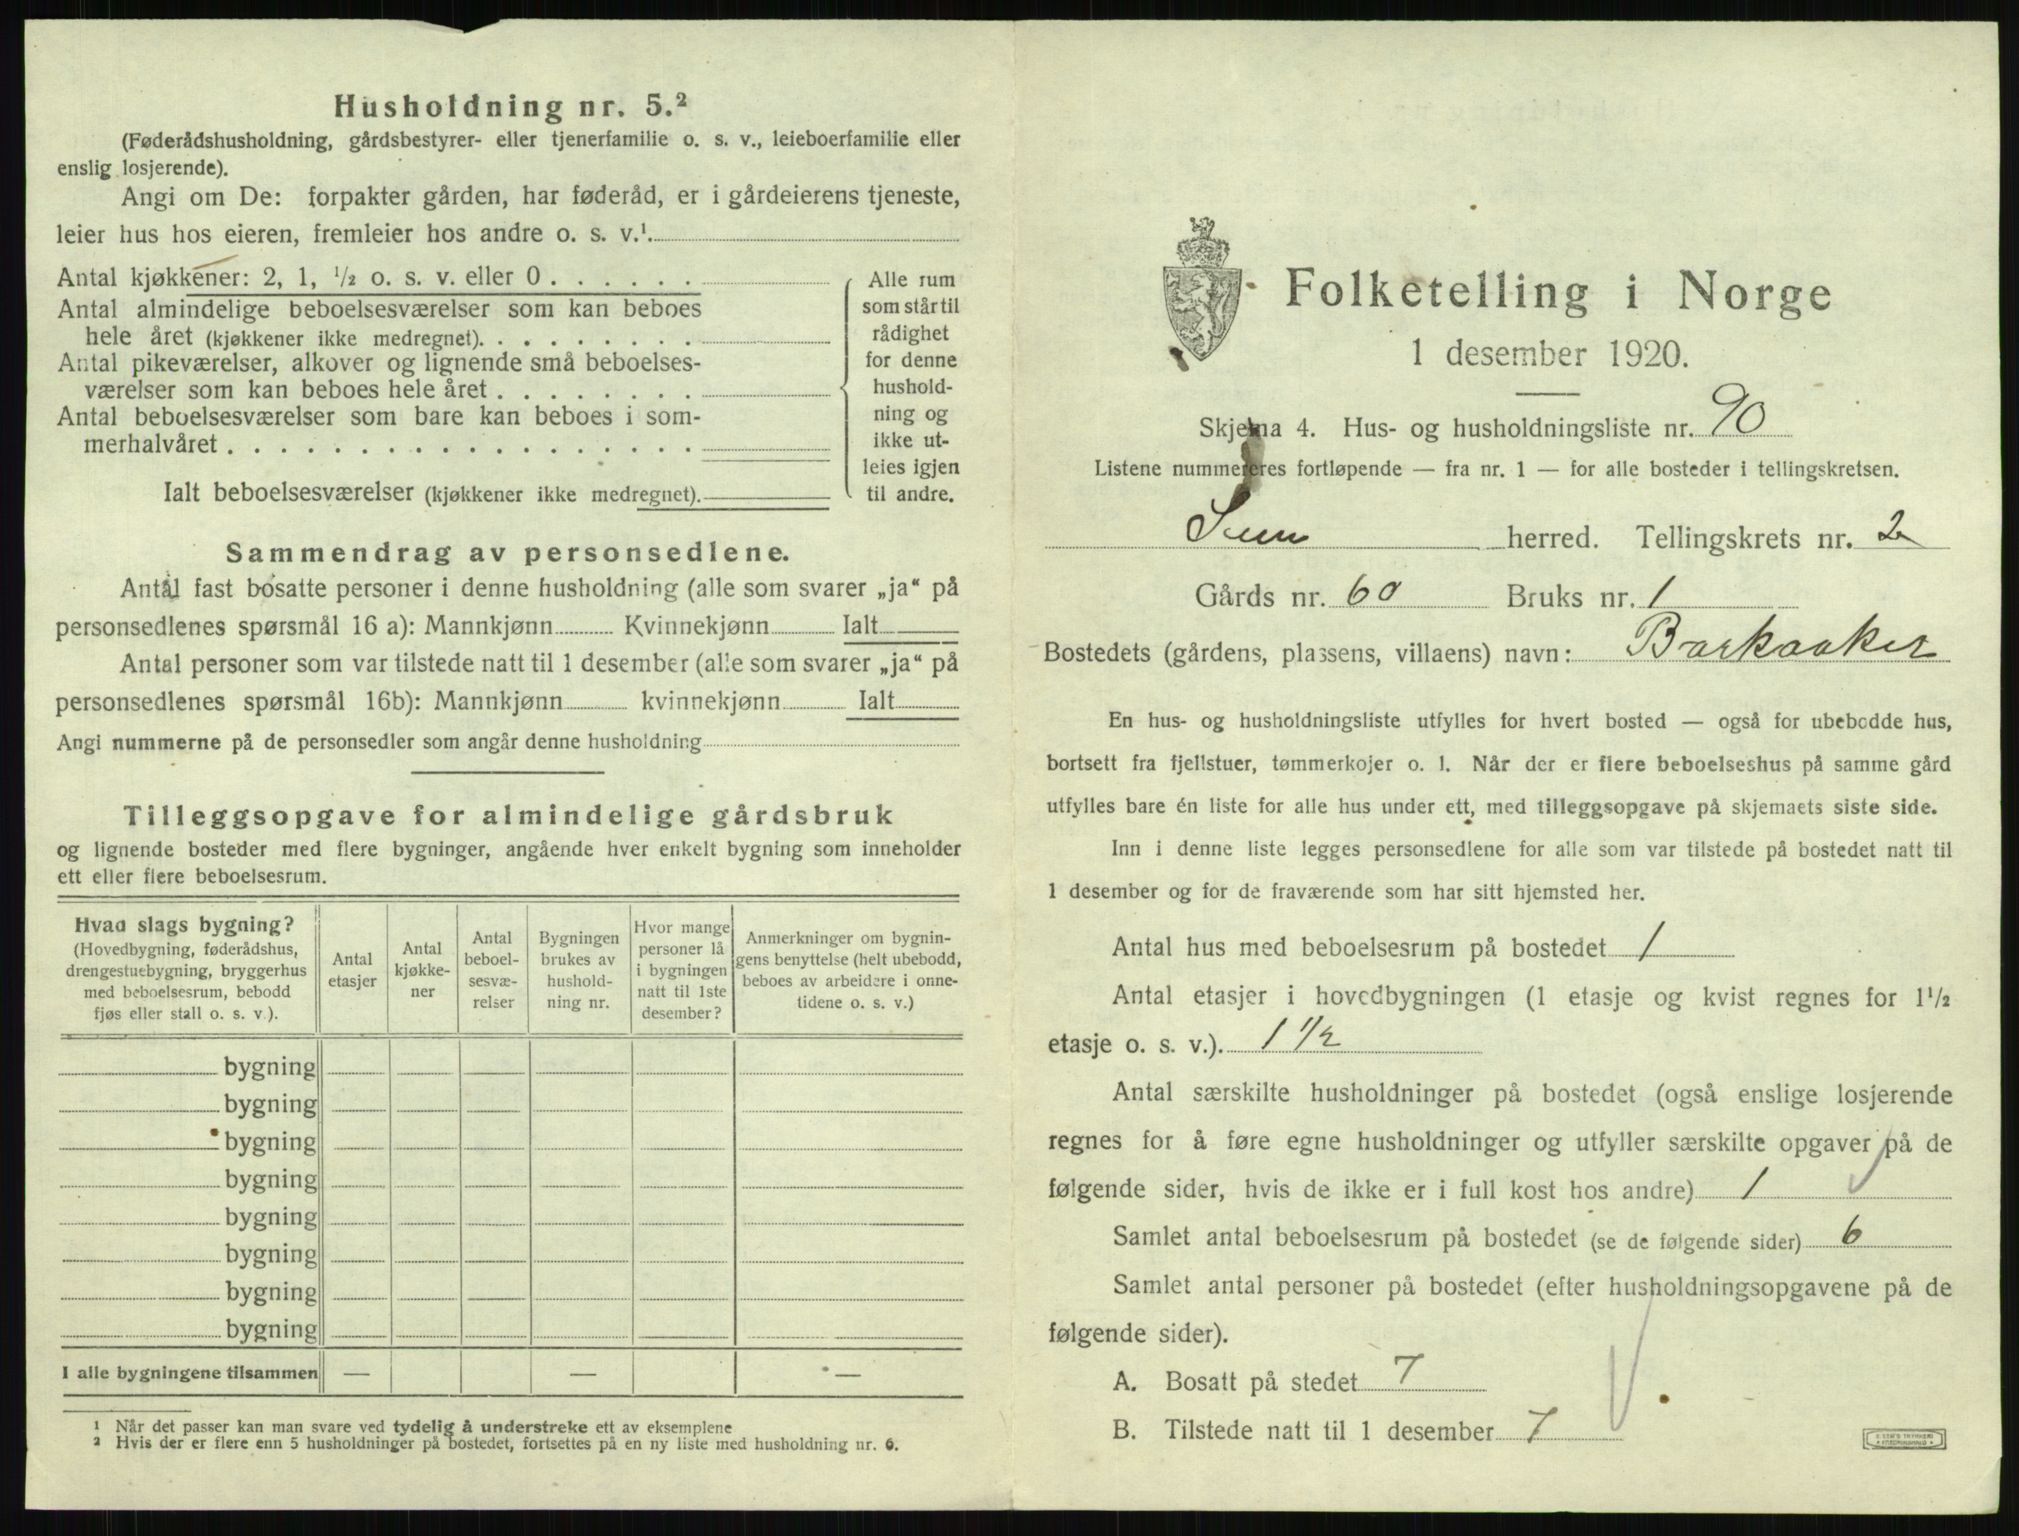 Husholdning nr. 5.²
(Føderådshusholdning, gårdsbestyrer- eller tjenerfamilie o. s. v., leieboerfamilie eller
enslig losjerende).
Angi om De: forpakter gården, har føderåd, er i gårdeierens tjeneste,
leier hus hos eieren, fremleier hos andre o. s. v.¹
Antal kjøkkener: 2, 1, ½ o. s. v. eller 0 . . . . . .
Antal almindelige beboelsesværelser som kan beboes
hele året (kjøkkener ikke medregnet). . . . . . . . .
Antal pikeværelser, alkover og lignende små beboelses-
værelser som kan beboes hele året . . . . . . . .
Antal beboelsesværelser som bare kan beboes i som-
merhalvåret . . . . . . . . . . . . . . . . . .
Ialt beboelsesværelser (kjøkkener ikke medregnet).
Alle rum
som står til
rådighet
for denne
hushold-
ning og
ikke ut-
leies igjen
til andre.
Sammendrag av personsedlene.
Antal fast bosatte personer i denne husholdning (alle som svarer „ja“ på
personsedlenes spørsmål 16 a): Mannkjønn Kvinnekjønn Ialt
Antal personer som var tilstede natt til 1 desember (alle som svarer „ja“ på
personsedlenes spørsmål 16b): Mannkjønn kvinnekjønn Ialt
Angi nummerne på de personsedler som angår denne husholdning
Tilleggsopgave for almindelige gårdsbruk
og lignende bosteder med flere bygninger, angående hver enkelt bygning som inneholder
ett eller flere beboelsesrum.
Hvad slags bygning?
(Hovedbygning, føderådshus,
drengestuebygning, bryggerhus
med beboelsesrum, bebodd
fjøs eller stall o. s. v.).
Antal
etasjer
Antal
kjøkke-
ner
Antal
beboel-
sesvæ-
relser
Bygningen
brukes av
hushold-
ning nr.
Hvor mange
personer lå
i bygningen
natt til 1ste
desember?
Anmerkninger om bygnin-
gens benyttelse (helt ubebodd,
beboes av arbeidere i onne-
tidene o. s. v.)
bygning
bygning
bygning
bygning
bygning
bygning
bygning
bygning
I alle bygningene tilsammen — — —
¹ Når det passer kan man svare ved tydelig å understreke ett av eksemplene
² Hvis der er flere enn 5 husholdninger på bostedet, fortsettes på en ny liste med husholdning nr. 6.
Folketelling i Norge
1 desember 1920.
Skjema 4. Hus- og husholdningsliste nr. 90
Listene nummereres fortløpende — fra nr. 1 — for alle bosteder i tellingskretsen.
Sem herred. Tellingskrets nr. 2
Gårds nr. 60 Bruks nr. 1
Bostedets (gårdens, plassens, villaens) navn: Barkaaker
En hus- og husholdningsliste utfylles for hvert bosted — også for ubebodde hus,
bortsett fra fjellstuer, tømmerkojer o. l. Når der er flere beboelseshus på samme gård
utfylles bare én liste for alle hus under ett, med tilleggsopgave på skjemaets siste side.
Inn i denne liste legges personsedlene for alle som var tilstede på bostedet natt til
1 desember og for de fraværende som har sitt hjemsted her.
Antal hus med beboelsesrum på bostedet 1
Antal etasjer i hovedbygningen (1 etasje og kvist regnes for 1½
etasje o. s. v.). 1 ½
Antal særskilte husholdninger på bostedet (også enslige losjerende
regnes for å føre egne husholdninger og utfyller særskilte opgaver på de
følgende sider, hvis de ikke er i full kost hos andre) 1
Samlet antal beboelsesrum på bostedet (se de følgende sider) 6
Samlet antal personer på bostedet (efter husholdningsopgavene på de
følgende sider).
A. Bosatt på stedet 7
B. Tilstede natt til 1 desember 7